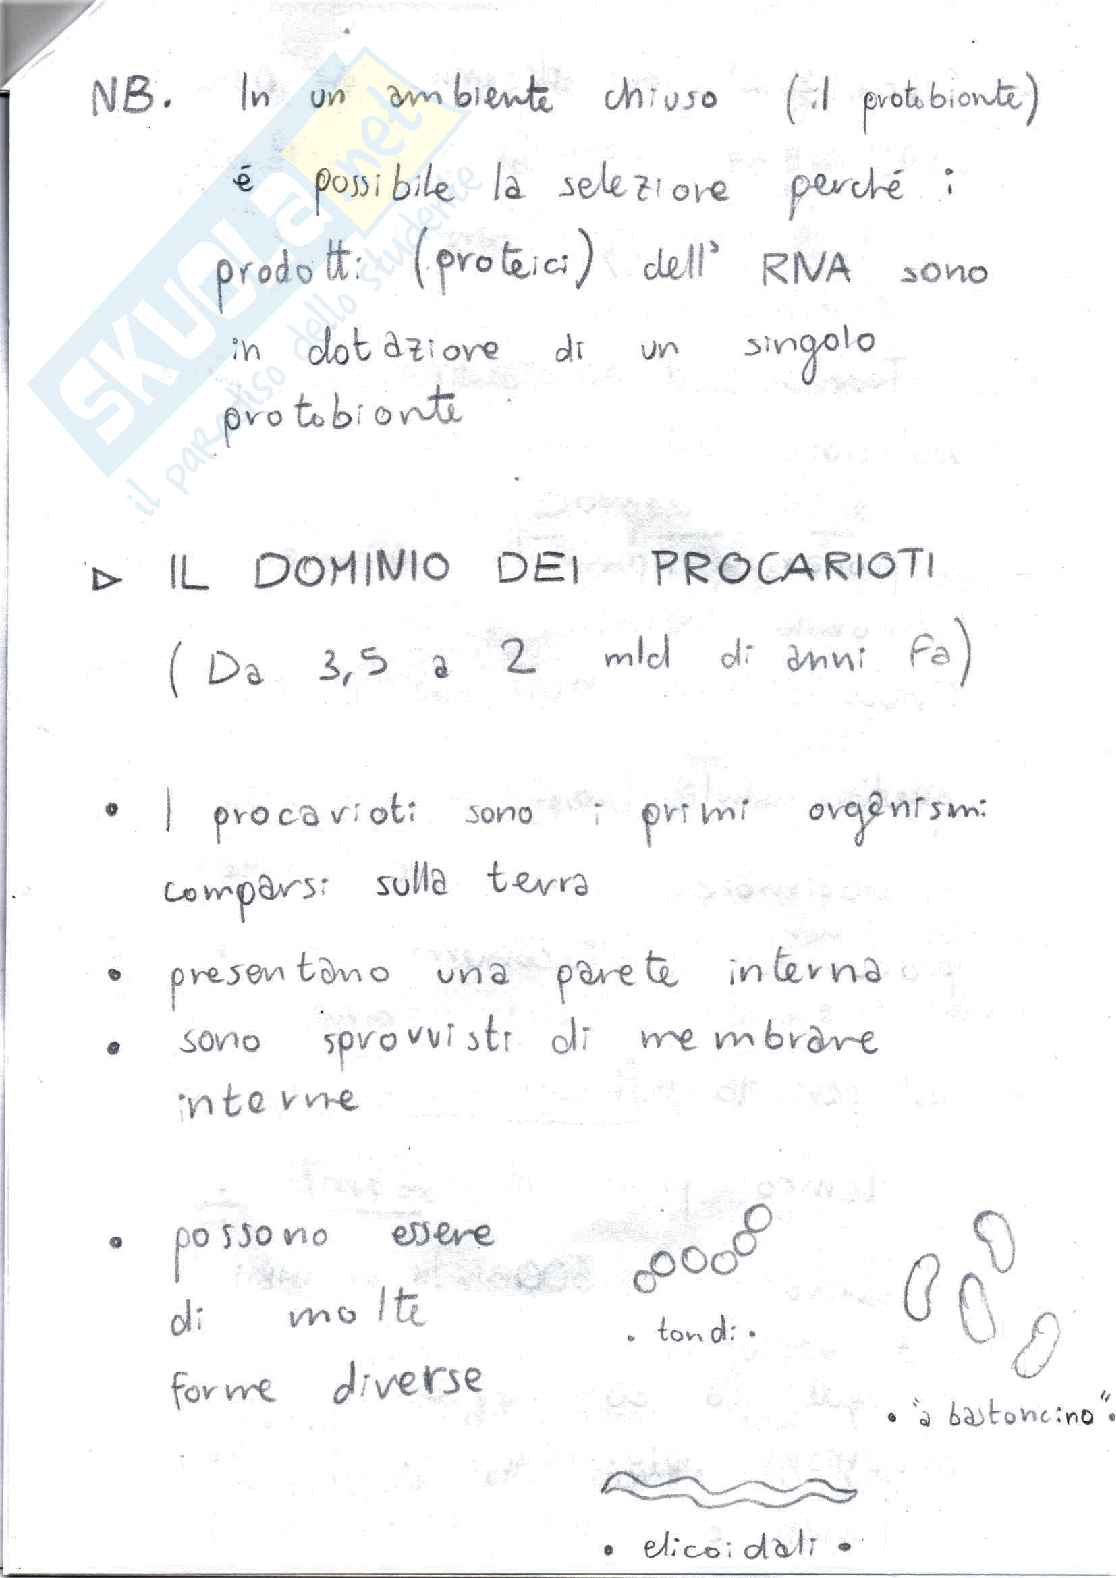 NB. In un ambiente chiuso (il protobionte)
é possibile la selezione perché i
prodotti (proteici) dell' RNA sono
in dotazione di un singolo
protobionte
▷ IL DOMINIO DEI PROCARIOTI
(Da 3,5 a 2 mld di anni fa)
• I procarioti sono i primi organismi
comparsi sulla terra
• presentano una parete interna
• sono sprovvisti di membrane
interne
• possono essere
di molte
forme diverse
• tondi •
• "a bastoncino" •
• elicoidali •
SKUOLA.net
il paradiso dello studente